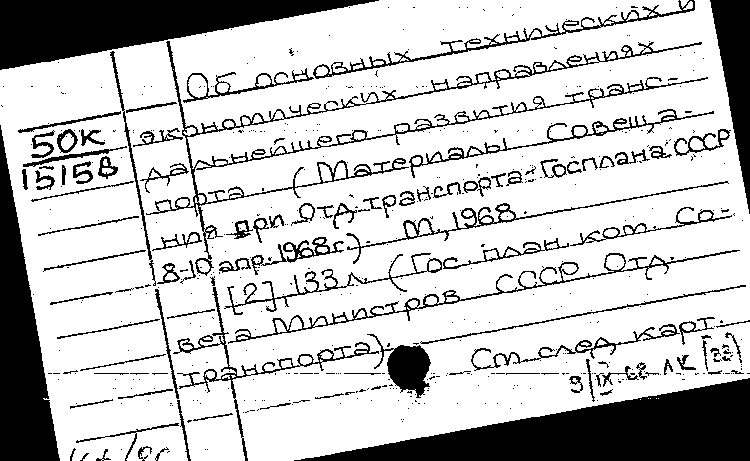 Об основных технических и
экономических направлениях
50К
1515в
дальнейшего развития транс-
порта. (Материалы Совеща-
ния при Отд. транспорта Госплана СССР
8-10 апр. 1968г.). М., 1968.
[2], 133 л. (Гос. план. ком. Со-
вета Министров СССР. Отд.
транспорта).
См след. карт.
9/IX.68 ЛК [22]